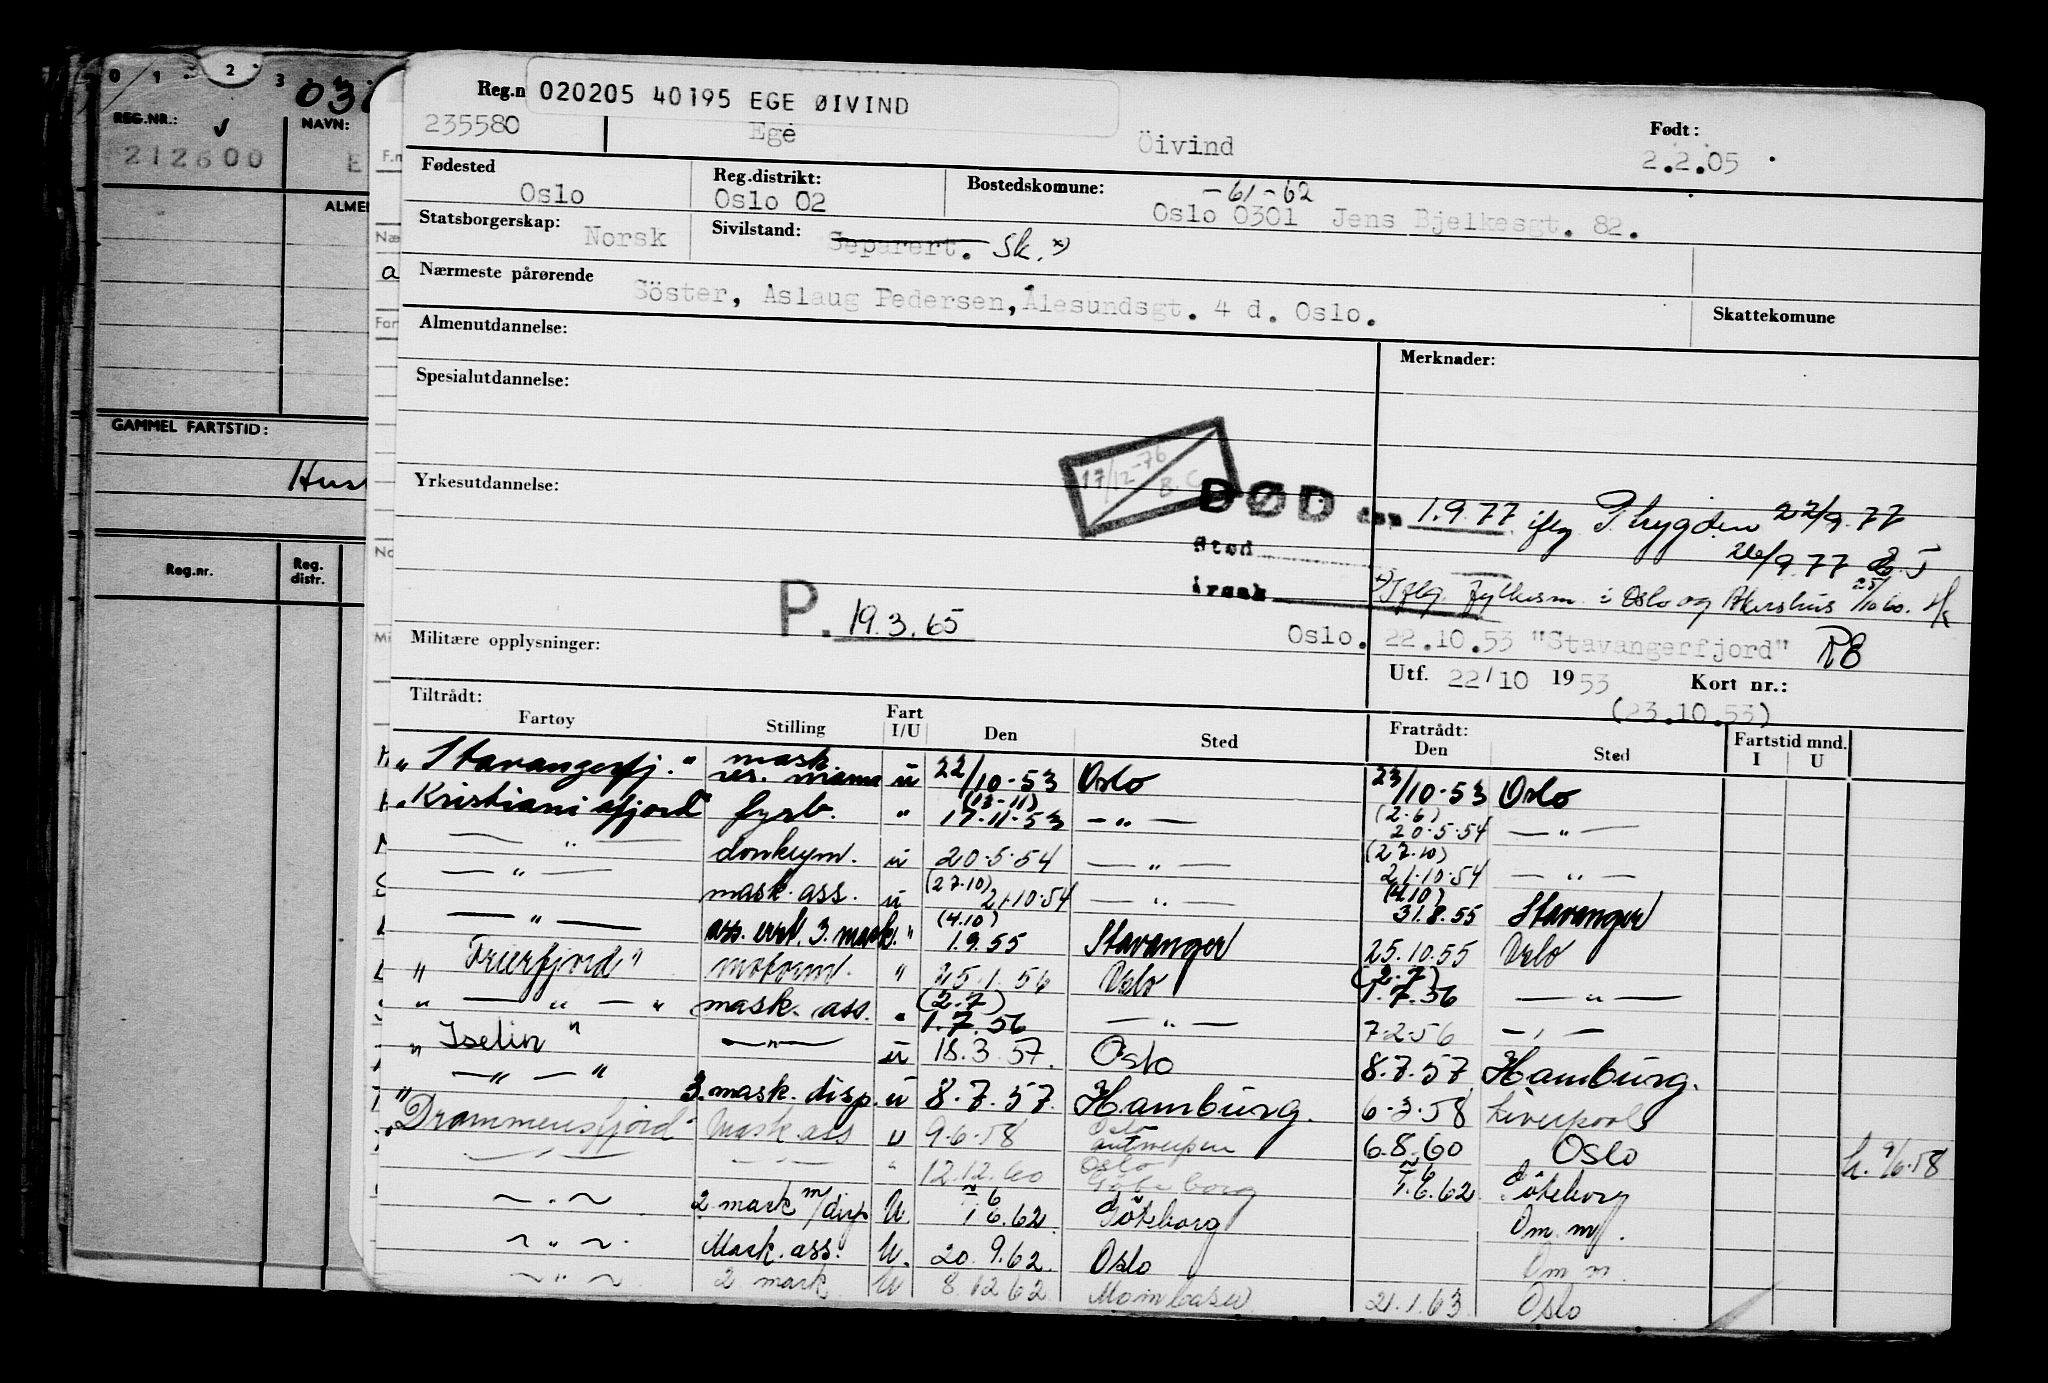 0 1 2 3
REG.NR.:
NAVN:
212600
E
ALME
GAMMEL FARTSTID:
Hus
Reg.nr.
Reg. distr.
Reg.n 020205 40195 EGE ØIVIND
235580 Ege Öivind
Født:
2.2.05
Fødested
Oslo
Reg.distrikt:
Oslo 02
Bostedskomune:
-61-62
Oslo 0301 Jens Bjelkesgt. 82.
Statsborgerskap: Norsk
Sivilstand: Separert. Sk. x)
Nærmeste pårørende
Söster, Aslaug Pedersen, Ålesundsgt. 4 d. Oslo.
Skattekomune
Almenutdannelse:
Merknader:
Spesialutdannelse:
17/12-76
B.C
Yrkesutdannelse:
DØD den 1.9.77 iflg. Trygden 22/9.77
26/9.77
Sted
årsak
x) Iflg. fylkesm. i Oslo og Akershus 25/10 60. Hk
P. 19.3.65
Militære opplysninger:
Oslo. 22.10.53 "Stavangerfjord" RE
Utf. 22/10 1953 Kort nr.:
(23.10.53)
Tiltrådt:
Fartøy Stilling Fart I/U Den Sted Fratrådt: Den Sted Fartstid mnd. I U
"Stavangerfj." mask. res. mann u 22/10-53 Oslo 23/10-53 Oslo
"Kristianiafjord" fyrb. " (13-11) 17.11.53 — " — (2.6) 20.5.54 — " —
— " — donkeym. u 20.5.54 — " — (27.10) 21.10.54 — " —
— " — mask. ass. u (27.10) 21.10.54 — " — (4.10) 31.8.55 Stavanger
— " — ass. vikt. 3. mask. " (4.10) 1.9.55 Stavanger 25.10.55 Oslo
" Trierfjord" motorm. " 25.1.56 Oslo (2.7) 1.7.56 — " —
" — " — " mask. ass. " (2.7) 1.7.56 — " — 7.2.56 — " —
" Iselin " — " — u 18.3.57. Oslo 8.7.57 Hamburg.
" — " — " 3. mask. disp. u 8.7.57. Hamburg. 6.3.58 Liverpool
"Drammensfjord" Mask ass u 9.6.58 Oslo Antwerpen 6.8.60 Oslo h. 9/6.58
— " — — " — " 12.12.60 Oslo Göteborg 1.6.62 Göteborg
~ " ~ 2 mask m/disp U. 1 6.62 Göteborg Om. m/.
~ " ~ Mask. ass. U. 20.9.62. Oslo Om m.
~ " ~ 2 mask U 8.12 62 Mombasa 21.1.63 Oslo